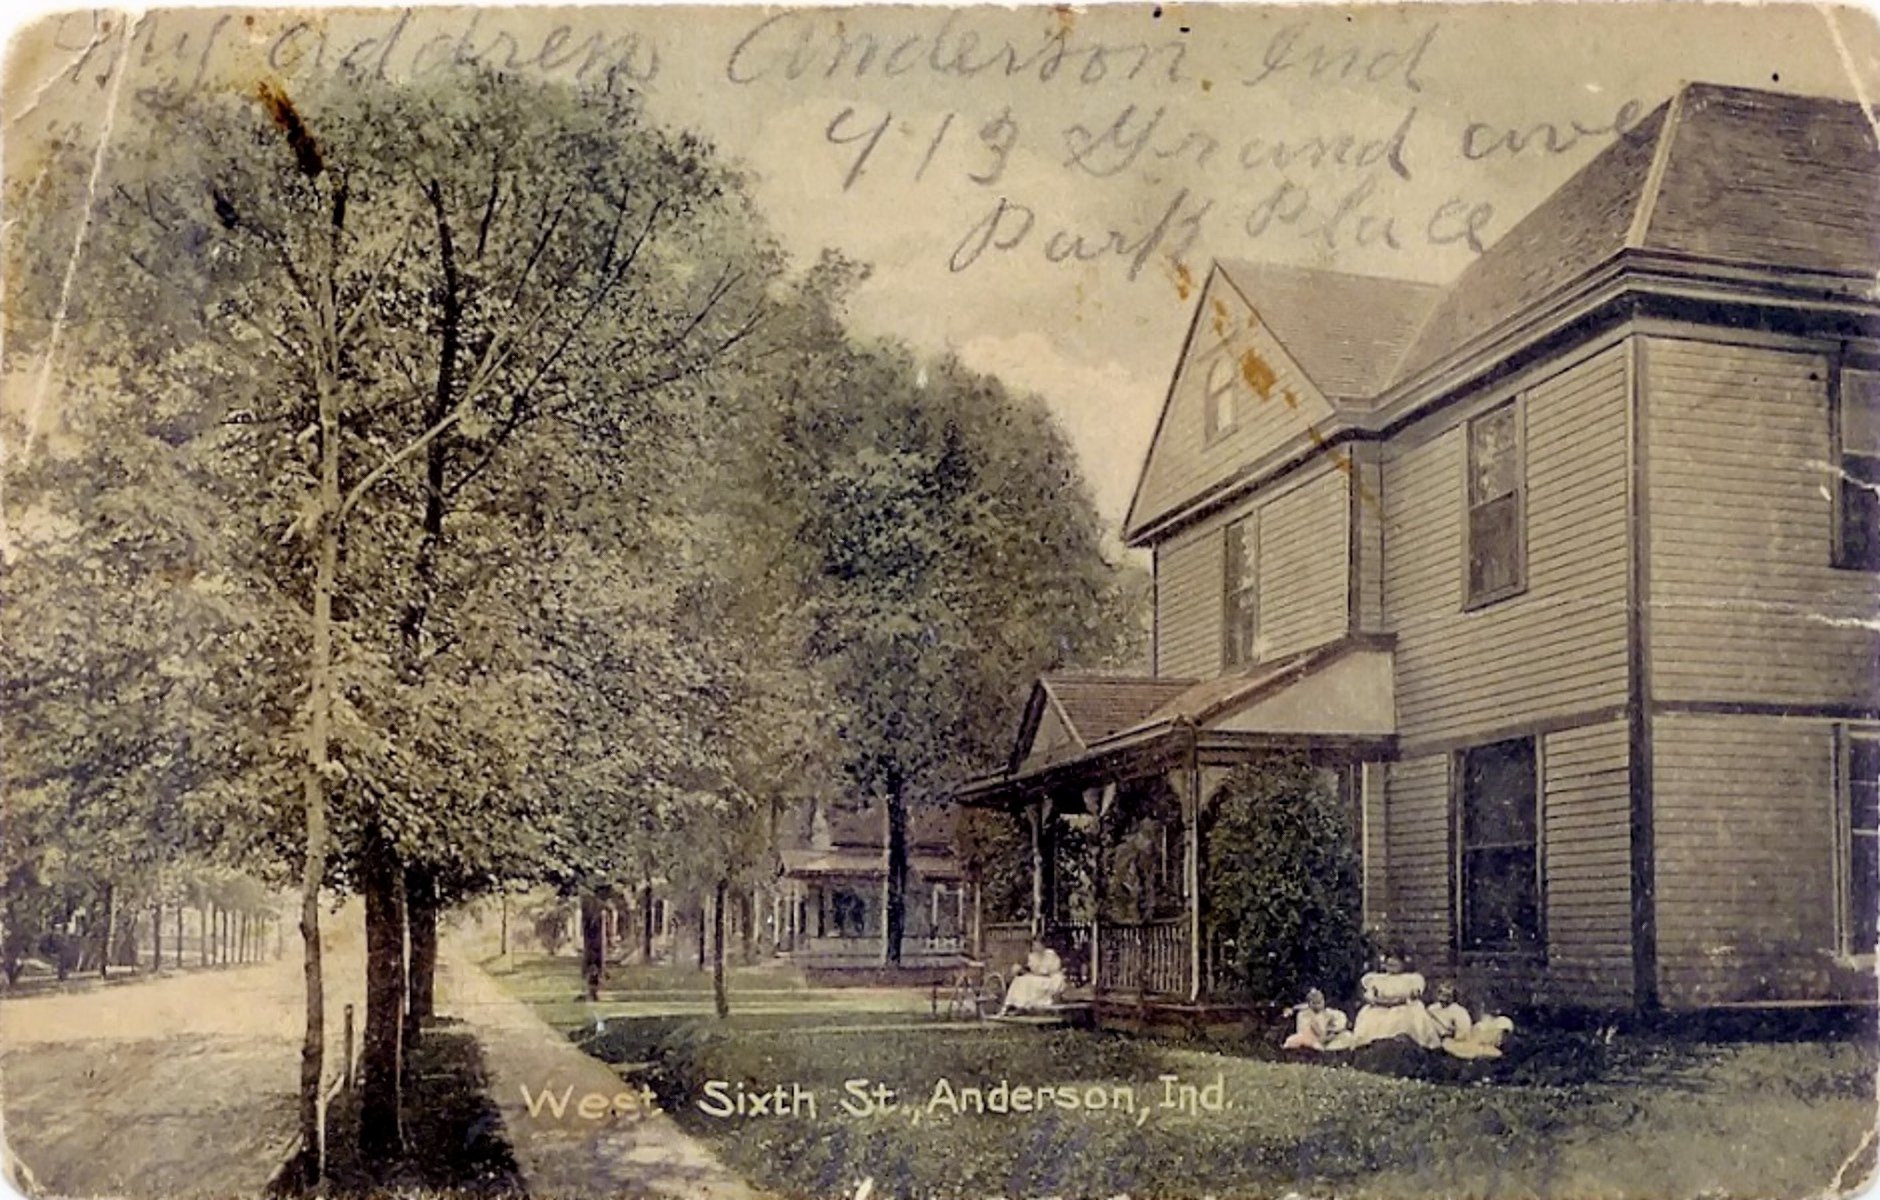 My address Anderson Ind
413 Grand ave
Park Place
West Sixth St., Anderson, Ind.